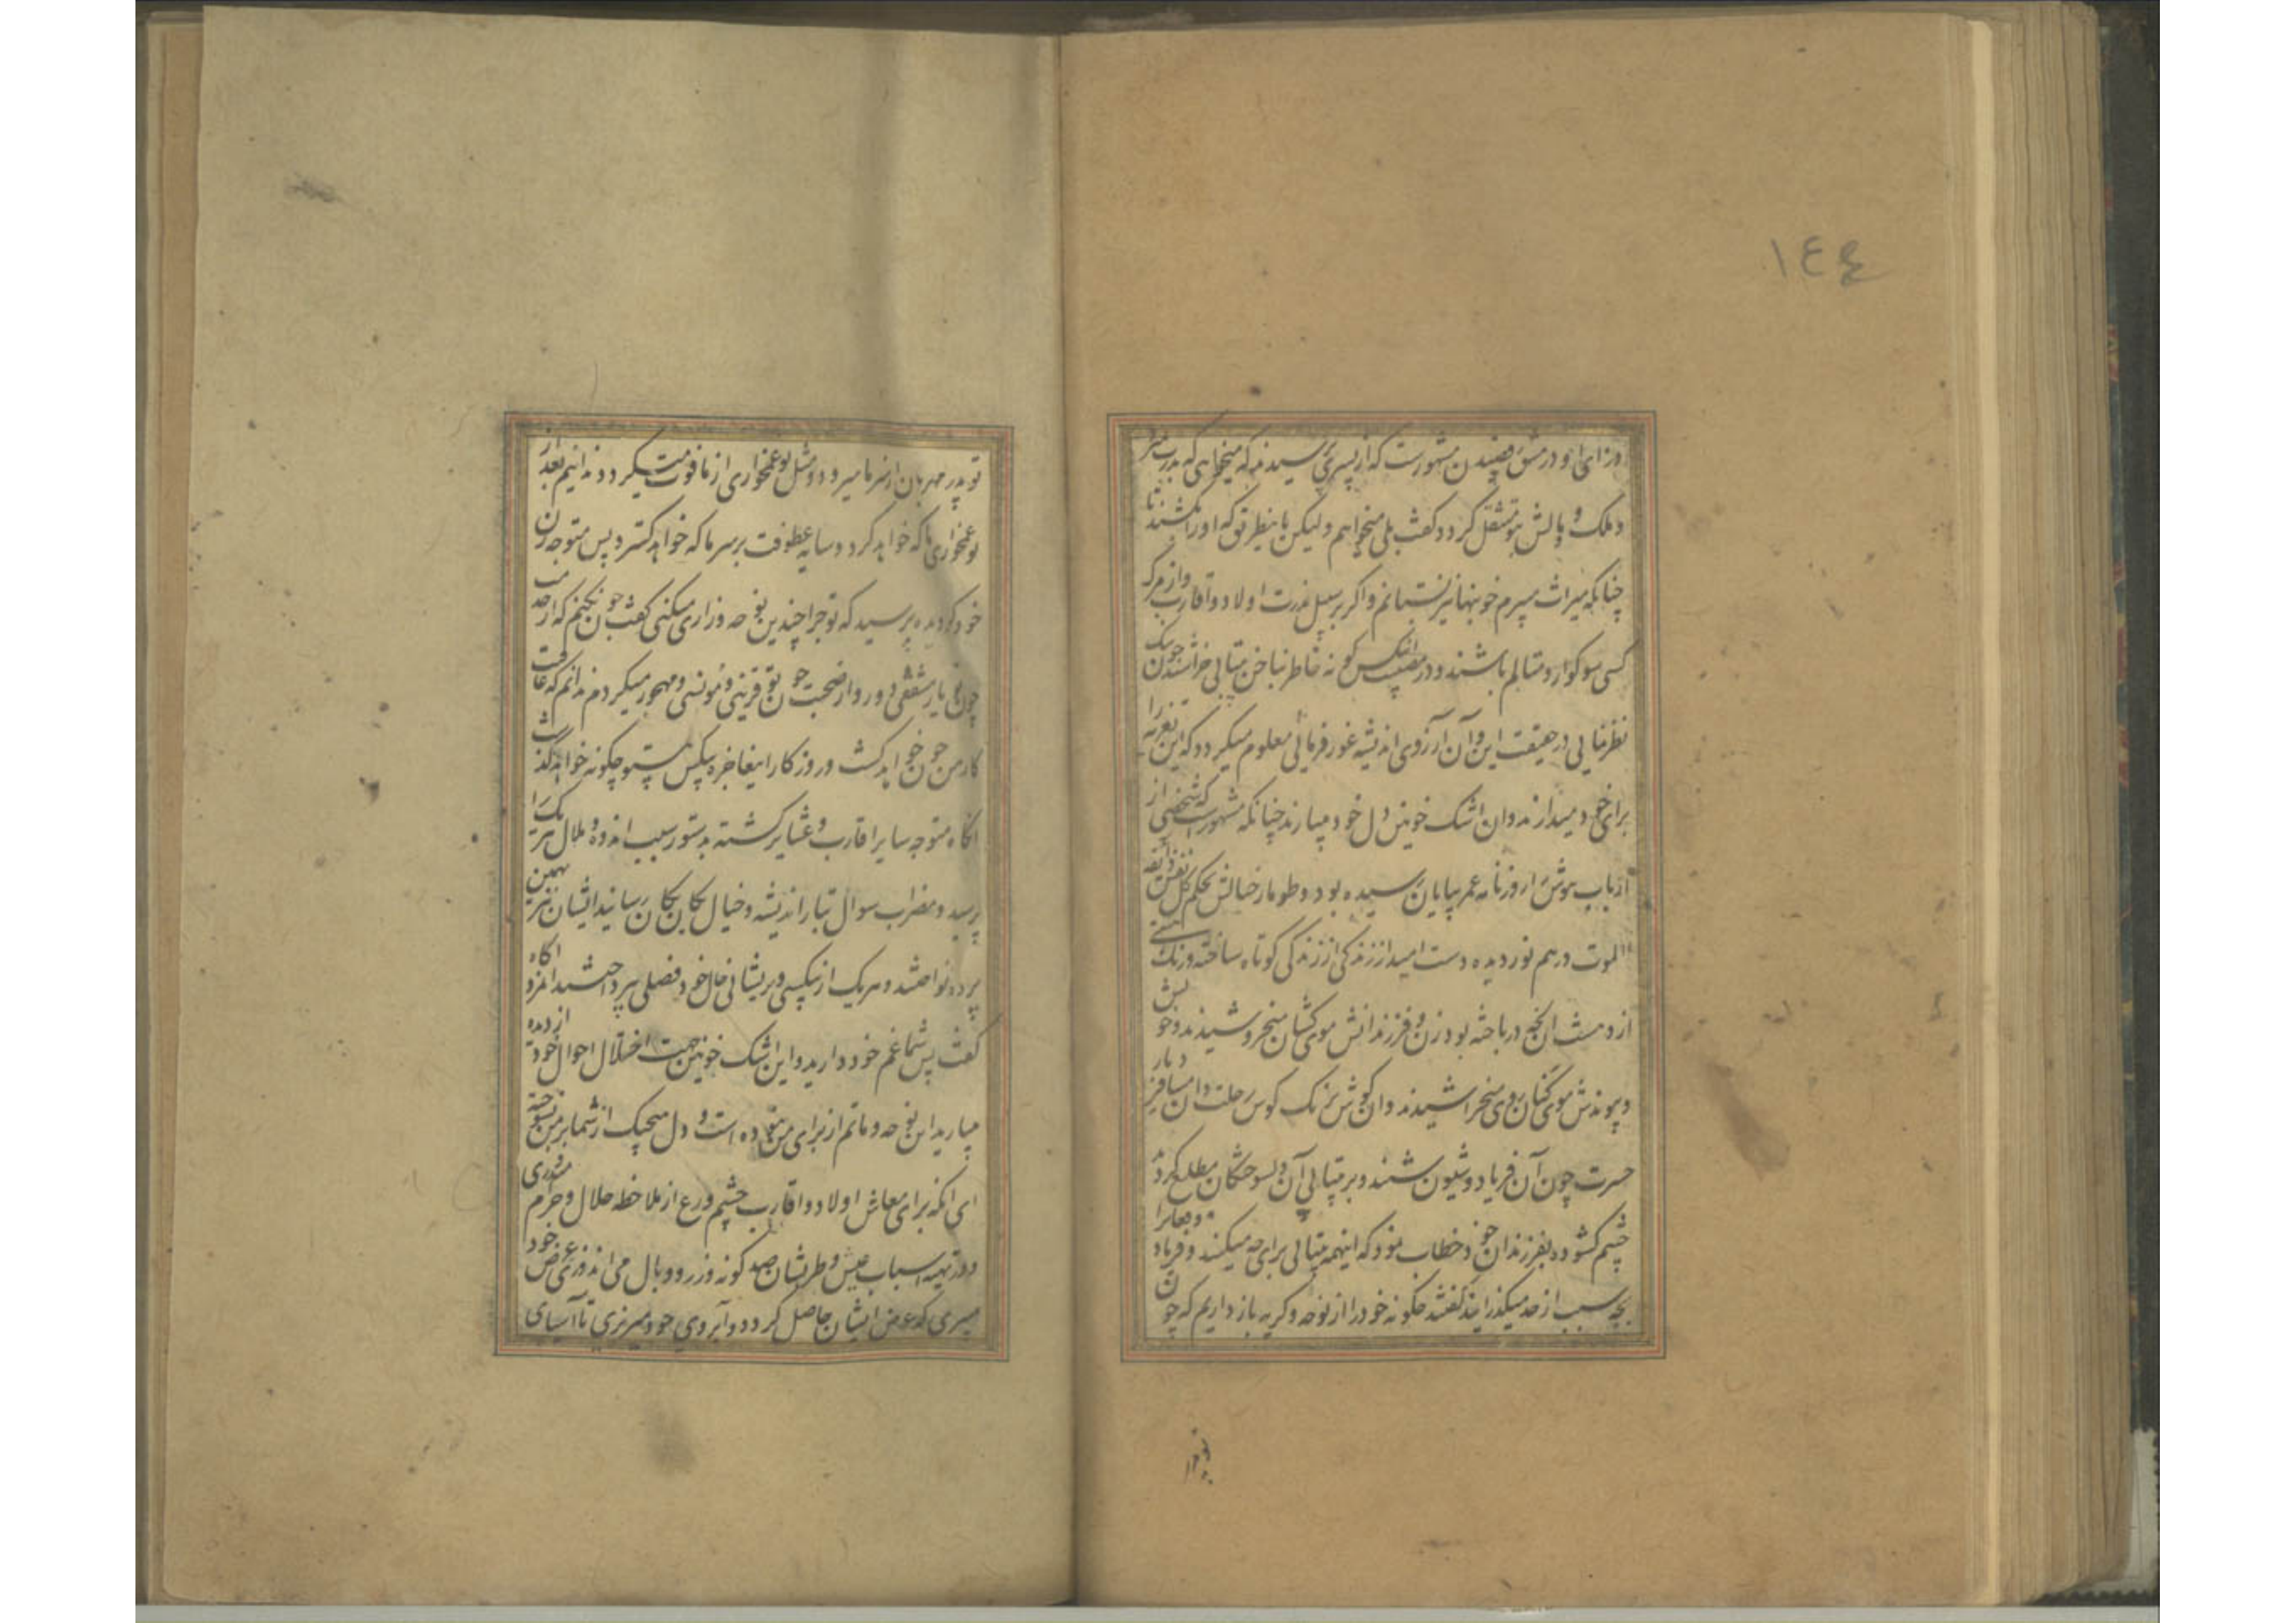 ١٤٤
و در مشق مشورت که از پسری پرسیدند که میخواهی که پدرت بمیرد
و ملک و مالش بتو منتقل گردد گفت بلی میخواهم و لیکن باینطریق که اورا بکشند تا
چنانکه میراث میبرم خونبها نیز بستانم و اگر بر سبیل ندرت اولاد و اقارب و از مرک
کسی سوکوار و متالم باشند و در مصیبت انکس کونه خاطر بناخن بیتابی خراشند چون نیک
نظر نمایی در حقیقت این و آن از روی اندیشه غور فرمائی معلوم میکردد که این تعزیه را
برای خود میدارند و ان اشک خونین دل خود میبارند چنانکه مشهورست که شخصی از
ارباب هوش را روزنامه عمر بپایان رسیده بود و طومار خیالش بحکم کل نفس ذائقه
الموت در هم نوردیده دست امید از زندکی کوتاه ساخته و رنک هستی
از دست انچه در باخته بود زن و فرزندانش موی کشان میخروشیدند و خویش
و پیوندش موی کنان روی میخراشیدند و ان کوش بزنک کوس رحلت و ان مسافر دیار
حسرت چون آن فریاد و شیون شنید و بر بیتابی آن دلسوختکان مطلع کردید
چشم کشوده بفرزندان خود خطاب نمود که اینهمه بیتابی برای چه میکنید و فریاد و فغانرا
بچه سبب از حد میکذرانید گفتند چکونه خود را از نوحه و کریه باز داریم که چون
تو پدر
تو پدر مهربان از سر ما میرود و مثل تو غمخواری از ما فوت میکردد ندانیم بعد از
تو غمخواری ما که خواهد کرد و سایه عطوفت بر سر ما که خواهد کسترد پس متوجه زن
خود کردیده پرسید که تو چرا چندین نوحه و زاری میکنی گفت چون نکنم که از خدمت
چون تو یار مشفقی دور و از صحبت چون تو قرینی و مونسی مهجور میکردم ندانم که عاقبت
کار من چون خواهد کشت و روزکار این عاجزه بیکس بیتو چکونه خواهد کذشت
انکاه متوجه سایر اقارب و عشایر کشته بدستور سبب اندوه و ملال هر یک را
پرسید و مضراب سوال بتار اندیشه و خیال یکان یکان رسانید ایشان نیز بهمین
پرده نواختند و هر یک از بیکسی و پریشانی حال خود فصلی پرداختند انمرد اکاه
گفت پس شما غم خود دارید و این اشک خونین جهت اختلال احوال خود از دیده
میبارید این نوحه و ماتم از برای من نبوده است و دل هیچیک از شما بر من نسوخته
ای انکه برای معاش اولاد و اقارب چشم ورع از ملاحظه حلال و حرام
و در تهیه اسباب عیش و طربشان صد کونه وزر و وبال می اندوزی عرض خود
میبری که غرض ایشان حاصل کردد و آبروی خود میریزی تا آسیای